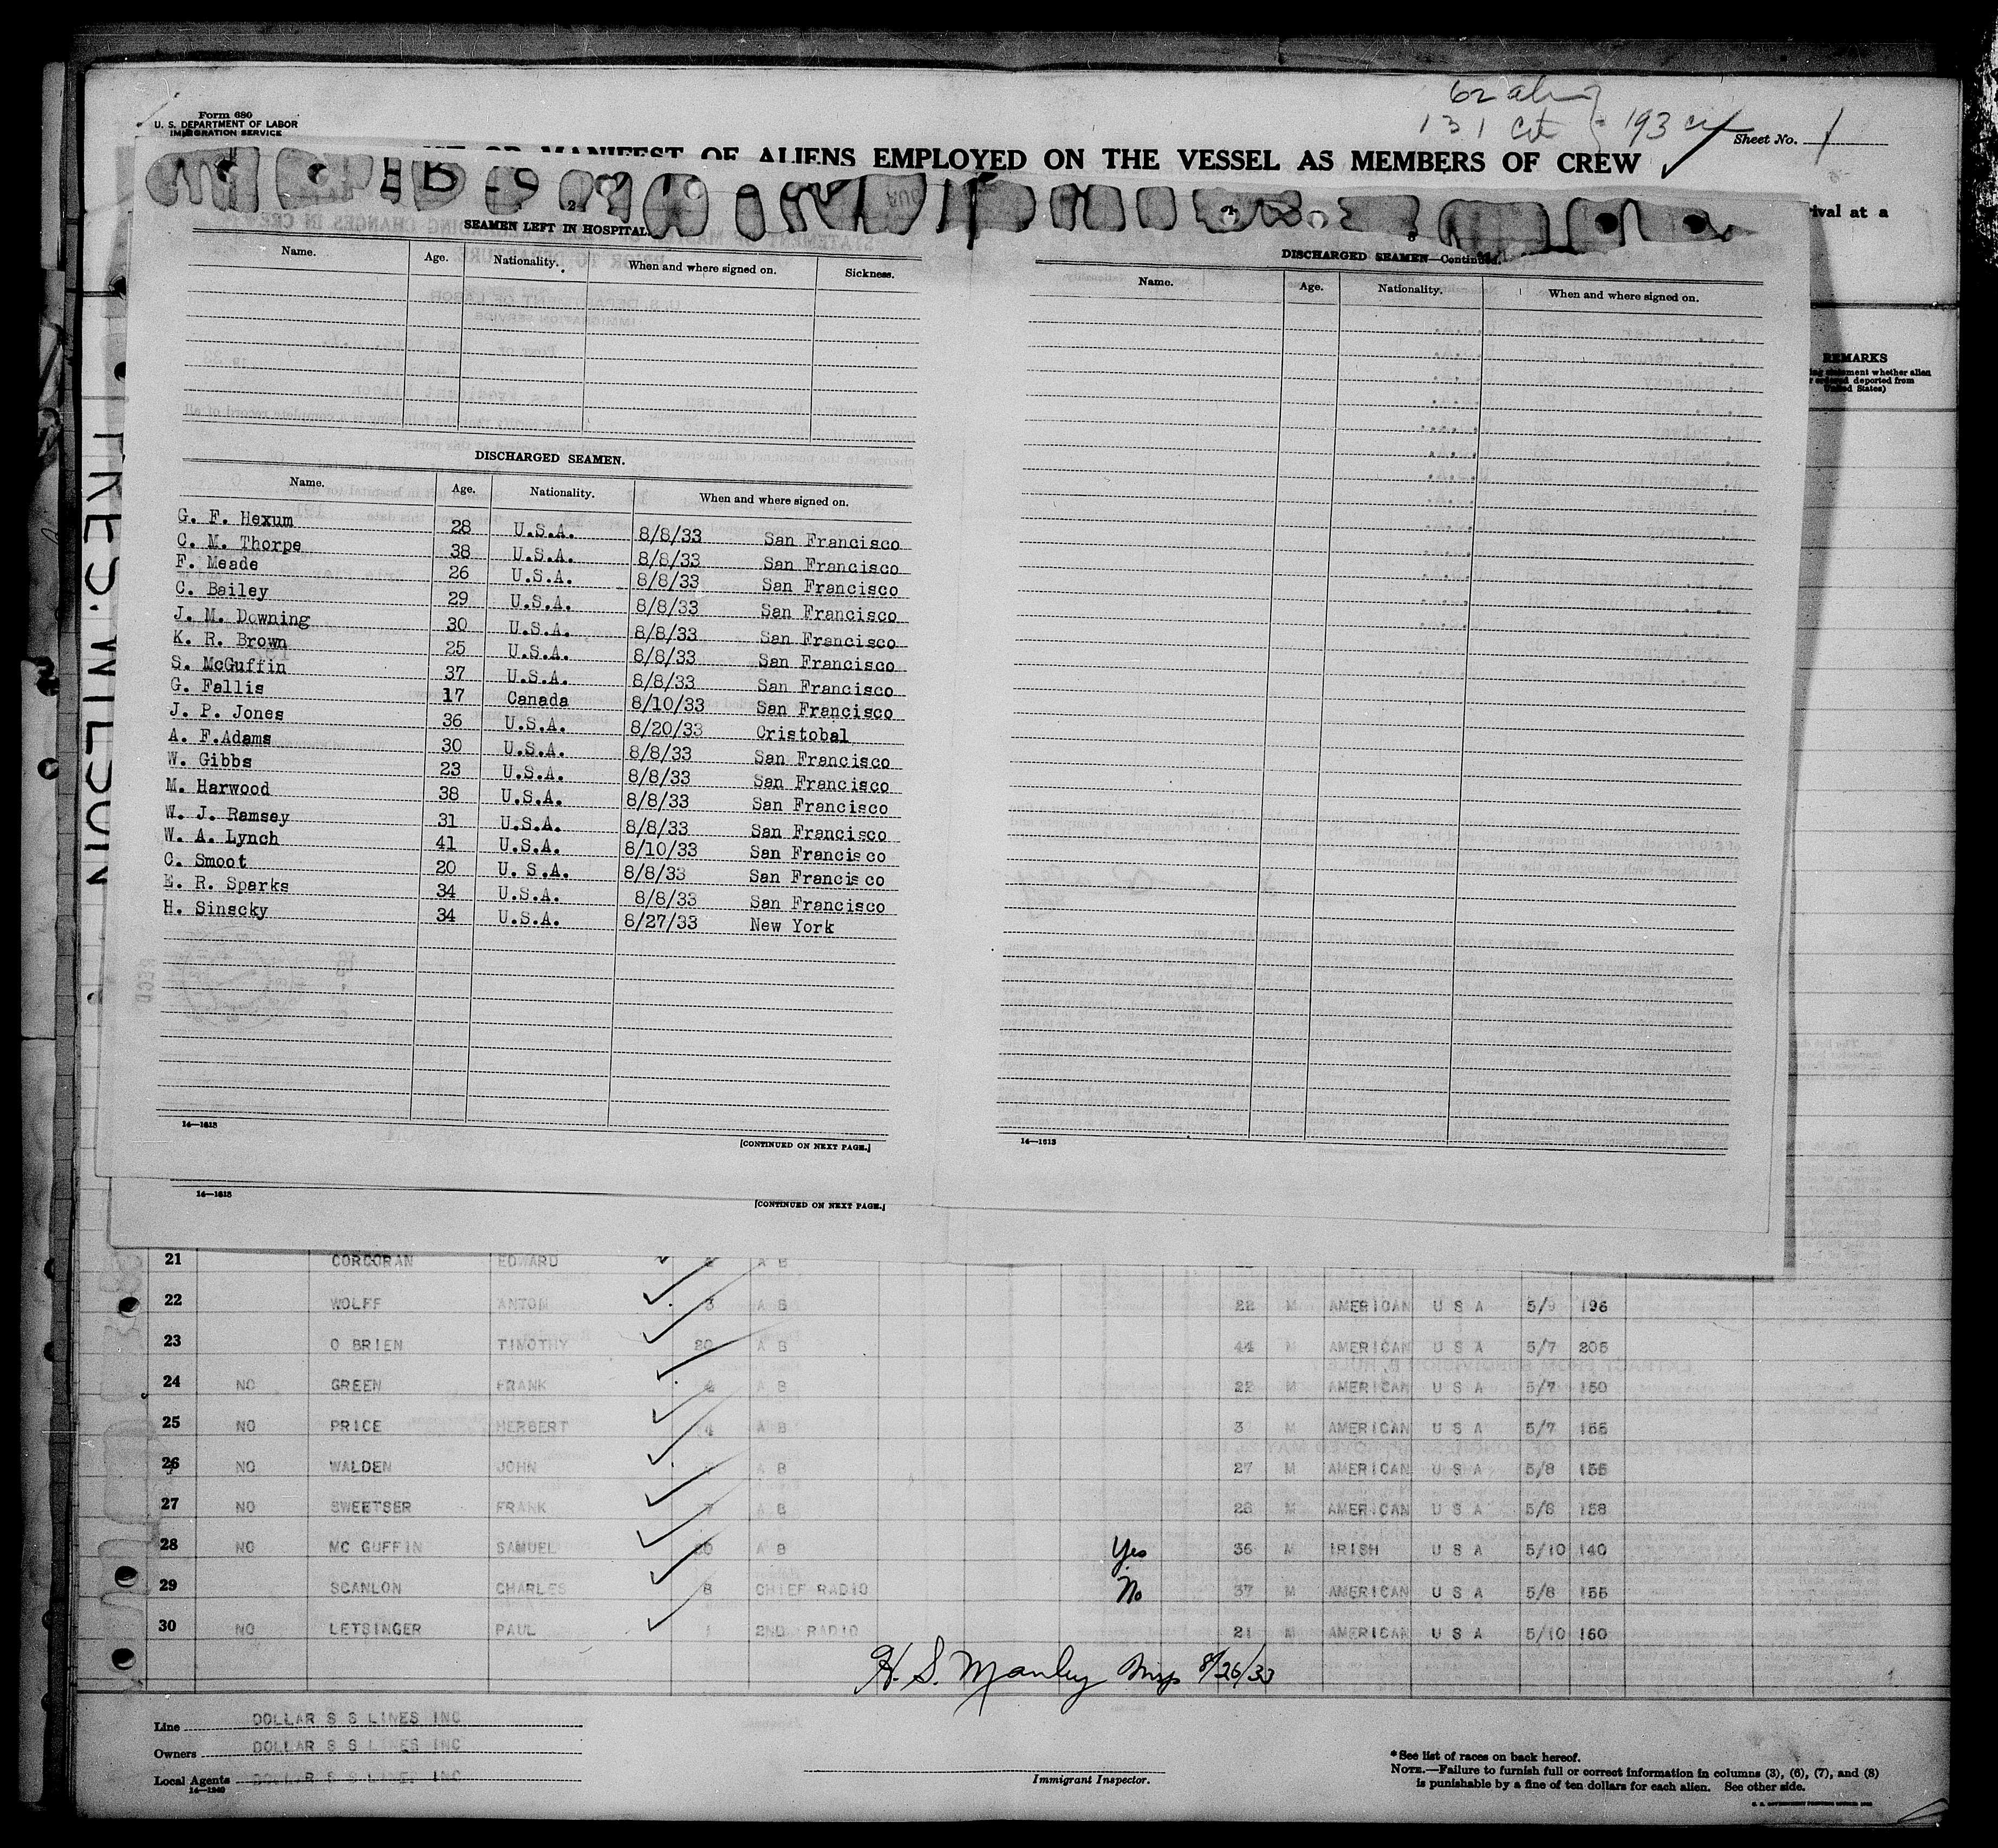 Form 680
U. S. DEPARTMENT OF LABOR
IMMIGRATION SERVICE
62
131 cit = 193
Sheet No. 1
OR MANIFEST OF ALIENS EMPLOYED ON THE VESSEL AS MEMBERS OF CREW
rival at a
REMARKS
statement whether alien
ordered deported from
United States)
PRES. WILSON
2
SEAMEN LEFT IN HOSPITAL.
Name. Age. Nationality. When and where signed on. Sickness.
DISCHARGED SEAMEN.
Name. Age. Nationality. When and where signed on.
G. F. Hexum 28 U.S.A. 8/8/33 San Francisco
C. M. Thorpe 38 U.S.A. 8/8/33 San Francisco
F. Meade 26 U.S.A. 8/8/33 San Francisco
C. Bailey 29 U.S.A. 8/8/33 San Francisco
J. M. Downing 30 U.S.A. 8/8/33 San Francisco
K. R. Brown 25 U.S.A. 8/8/33 San Francisco
S. McGuffin 37 U.S.A. 8/8/33 San Francisco
G. Fallis 17 Canada 8/10/33 San Francisco
J. P. Jones 36 U.S.A. 8/20/33 Cristobal
A. F.Adams 30 U.S.A. 8/8/33 San Francisco
W. Gibbs 23 U.S.A. 8/8/33 San Francisco
M. Harwood 38 U.S.A. 8/8/33 San Francisco
W. J. Ramsey 31 U.S.A. 8/8/33 San Francisco
W. A. Lynch 41 U.S.A. 8/10/33 San Francisco
C. Smoot 20 U. S.A. 8/8/33 San Francisco
E. R. Sparks 34 U.S.A. 8/8/33 San Francisco
H. Sinscky 34 U.S.A. 8/27/33 New York
14—1613
[CONTINUED ON NEXT PAGE.]
DISCHARGED SEAMEN—Continued.
Name. Age. Nationality. When and where signed on.
14—1613
14—1613
[CONTINUED ON NEXT PAGE.]
21 CORCORAN EDWARD A B
22 WOLFF ANTON 3 A B 22 M AMERICAN U S A 5/9 196
23 O BRIEN TIMOTHY 20 A B 44 M AMERICAN U S A 5/7 205
24 NO GREEN FRANK A B 22 M AMERICAN U S A 5/7 150
25 NO PRICE HERBERT 4 A B 3 M AMERICAN U S A 5/7 155
26 NO WALDEN JOHN A B 27 M AMERICAN U S A 5/8 155
27 NO SWEETSER FRANK 7 A B 28 M AMERICAN U S A 5/8 158
28 NO MC GUFFIN SAMUEL 20 A B Yes 36 M IRISH U S A 5/10 140
29 SCANLON CHARLES 8 CHIEF RADIO No 37 M AMERICAN U S A 5/8 155
30 NO LETSINGER PAUL 1 2ND RADIO 21 M AMERICAN U S A 5/10 160
H. S. Manley Insp 8/26/33
Line DOLLAR S S LINES INC
Owners DOLLAR S S LINES INC
Local Agents DOLLAR S S LINES INC
14—1240
Immigrant Inspector.
*See list of races on back hereof.
NOTE.—Failure to furnish full or correct information in columns (3), (6), (7), and (8)
is punishable by a fine of ten dollars for each alien. See other side.